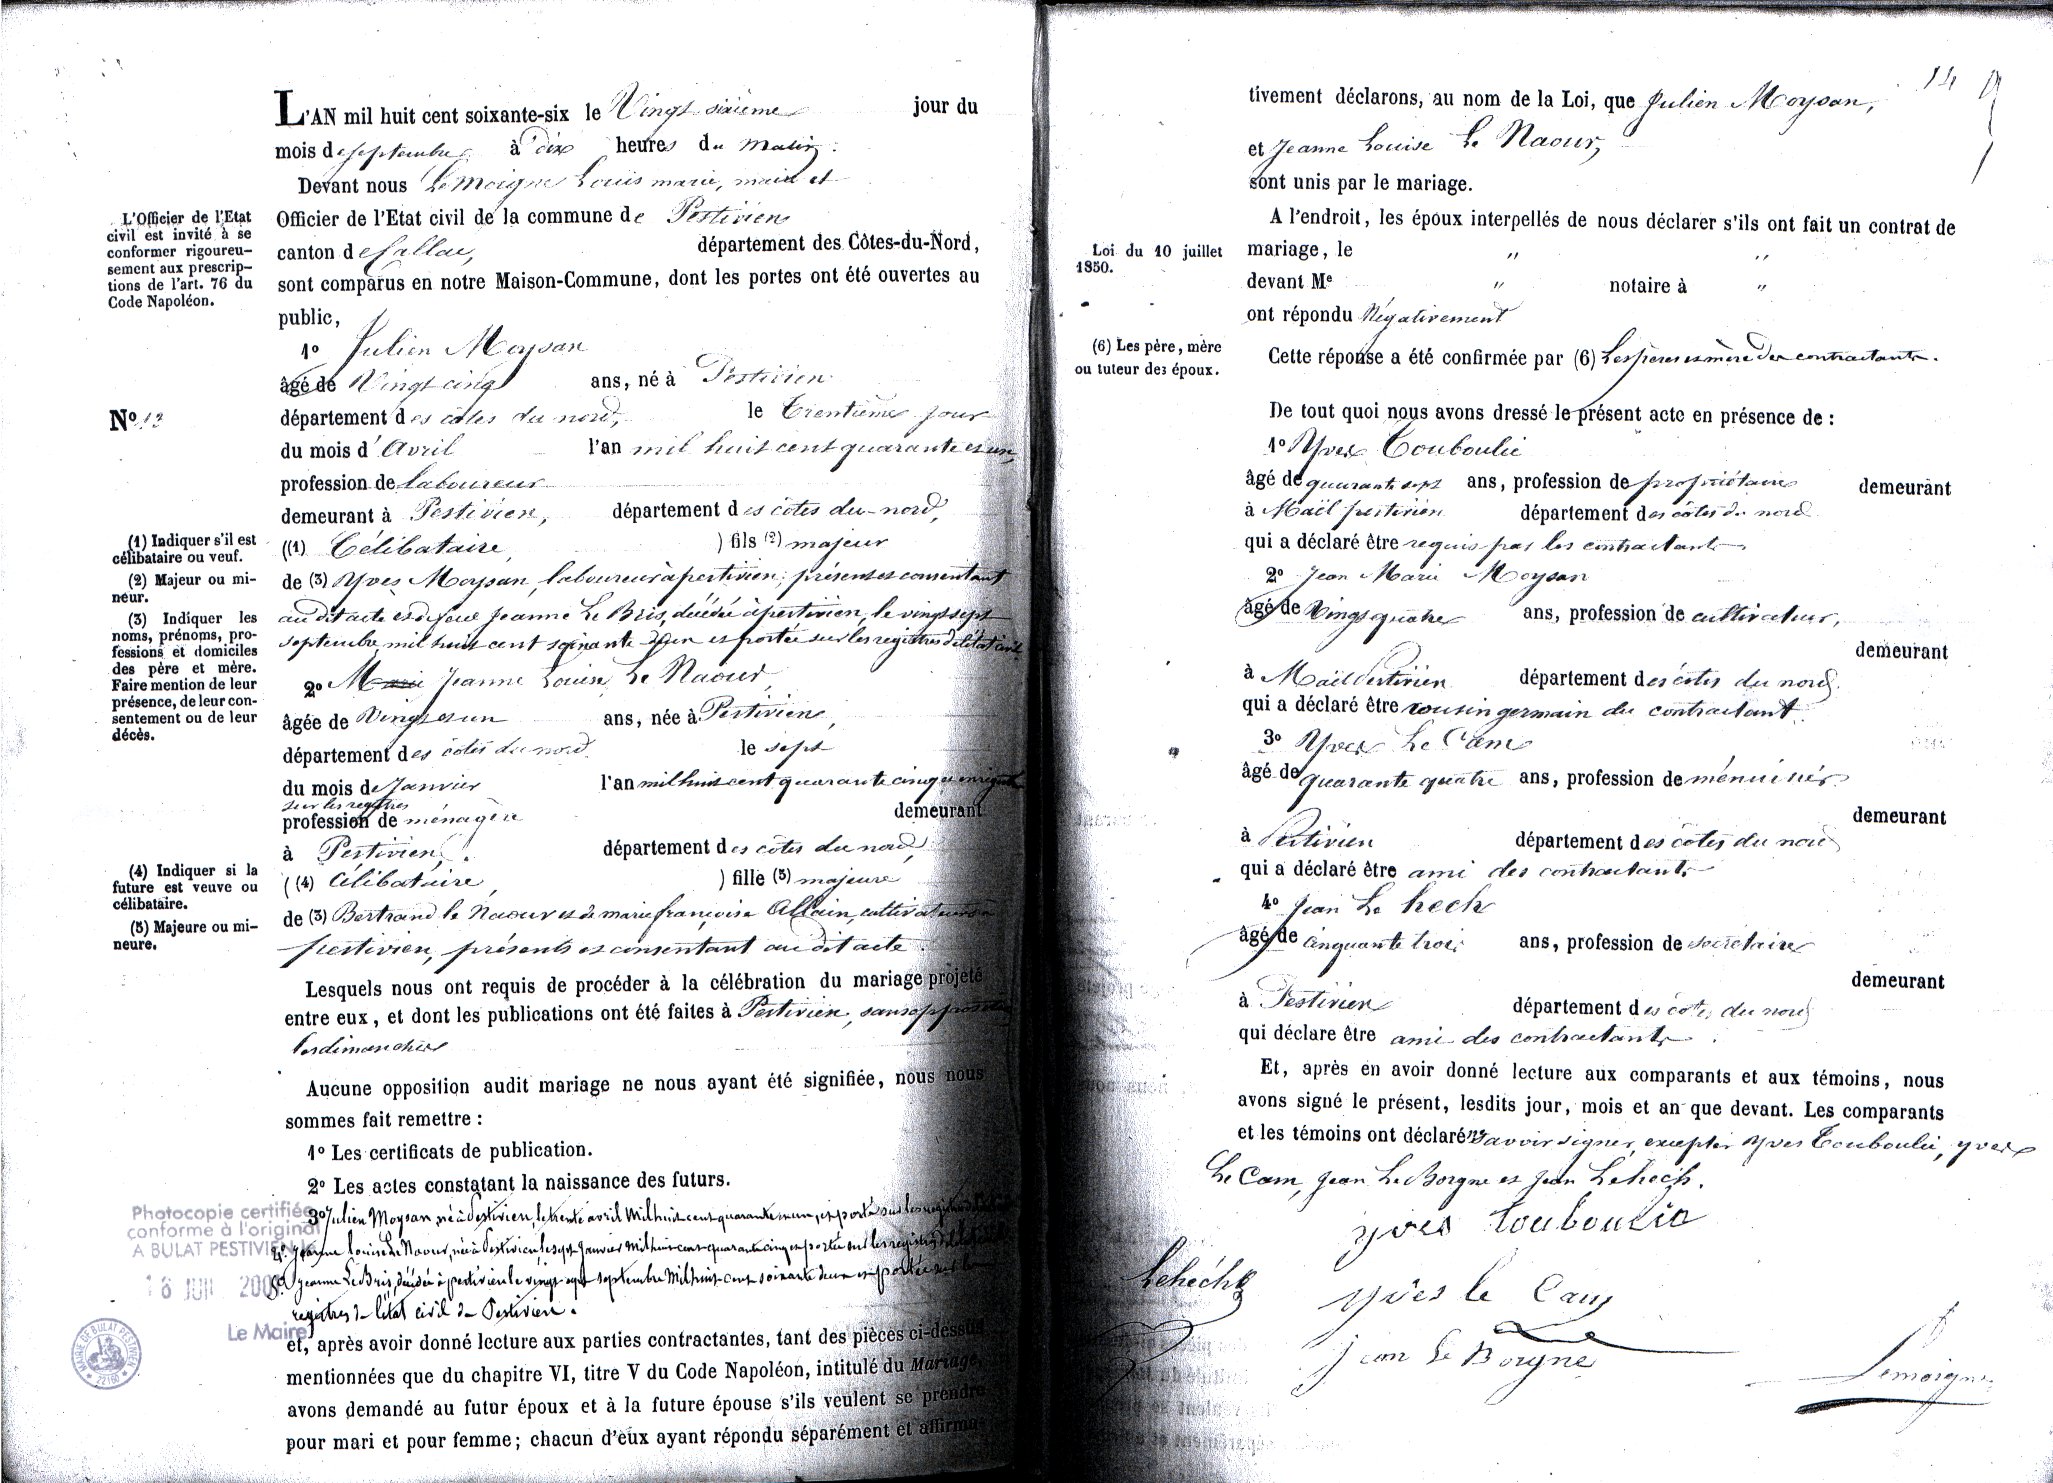 L'AN mil huit cent soixante-six le Vingt sixième jour du
mois de septembre à dix heures du matin.
Devant nous Le Moigne Louis marie, maire et
Officier de l'Etat civil de la commune de Pestivien
canton de Callac, département des Côtes-du-Nord,
sont comparus en notre Maison-Commune, dont les portes ont été ouvertes au
public,
L'Officier de l'Etat
civil est invité à se
conformer rigoureu-
sement aux prescrip-
tions de l'art. 76 du
Code Napoléon.
1º Julien Moysan
âgé de Vingt cinq ans, né à Pestivien
département des côtes du nord, le Trentième jour
Nº 13
du mois d'Avril l'an mil huit cent quarante et un,
profession de laboureur
demeurant à Pestivien, département des côtes du-nord,
((1) Célibataire, ) fils (2) majeur
de (3) Yves Moysan, laboureur à pestivien, présent et consentant
au dit acte et de feue Jeanne Le Bris, décédée à pestivien, le vingt sept
septembre mil huit cent soixante deux et portée sur les registres de l'état civil
(1) Indiquer s'il est
célibataire ou veuf.
(2) Majeur ou mi-
neur.
(3) Indiquer les
noms, prénoms, pro-
fessions et domiciles
des père et mère.
Faire mention de leur
présence, de leur con-
sentement ou de leur
décès.
2º Marie Jeanne Louise Le Naour,
âgée de Vingt et un ans, née à Pestivien,
département des côtes du nord le sept
du mois de Janvier l'an mil huit cent quarante cinq et
sur les registres
profession de ménagère demeurant
à Pestivien, département des côtes du nord,
((4) Célibataire, ) fille (5) majeure
de (3) Bertrand le Naour et de marie françoise Allain, cultivateurs à
pestivien, présents et consentant au dit acte.
(4) Indiquer si la
future est veuve ou
célibataire.
(5) Majeure ou mi-
neure.
Lesquels nous ont requis de procéder à la célébration du mariage projeté
entre eux, et dont les publications ont été faites à Pestivien, sans opposition
les dimanches
Aucune opposition audit mariage ne nous ayant été signifiée, nous nous
sommes fait remettre :
1º Les certificats de publication.
2º Les actes constatant la naissance des futurs.
3º Julien Moysan, né à Pestivien, le trente avril Mil huit cent quarante et un, et porté sur les registres
4º Jeanne louise Le Naour, née à Pestivien le sept Janvier Mil huit cent quarante cinq et portée sur les registres
5º Jeanne Le Bris, décédée à pestivien le vingt sept septembre Mil huit cent soixante deux et portée sur les
registres de l'état civil de Pestivien.
Photocopie certifiée
conforme à l'original
A BULAT PESTIVIEN
16 JUIL 200
Le Maire
MAIRIE DE BULAT PESTIVIEN
22160
et, après avoir donné lecture aux parties contractantes, tant des pièces ci-dessus
mentionnées que du chapitre VI, titre V du Code Napoléon, intitulé du Mariage,
avons demandé au futur époux et à la future épouse s'ils veulent se prendre
pour mari et pour femme; chacun d'eux ayant répondu séparément et affirma-
14
tivement déclarons, au nom de la Loi, que Julien Moysan,
et Jeanne Louise Le Naour,
sont unis par le mariage.
A l'endroit, les époux interpellés de nous déclarer s'ils ont fait un contrat de
mariage, le " "
devant Me " notaire à "
ont répondu Négativement
Loi du 10 juillet
1850.
Cette réponse a été confirmée par (6) Les pères et mère des contractants.
(6) Les père, mère
ou tuteur des époux.
De tout quoi nous avons dressé le présent acte en présence de :
1º Yves Touboulic
âgé de quarante sept ans, profession de propriétaire demeurant
à Maël pestivien département des côtes du nord
qui a déclaré être requis par les contractants
2º Jean Marie Moysan
âgé de Vingt quatre ans, profession de cultivateur,
demeurant
à Maël Pestivien département des côtes du nord
qui a déclaré être cousin germain du contractant
3º Yves Le Cam
âgé de quarante quatre ans, profession de ménuisier
demeurant
à Pestivien département des côtes du nord
qui a déclaré être ami des contractants
4º Jean Le hech
âgé de cinquante trois ans, profession de secrétaire
demeurant
à Pestivien département des côtes du nord
qui déclare être ami des contractants.
Et, après en avoir donné lecture aux comparants et aux témoins, nous
avons signé le présent, lesdits jour, mois et an que devant. Les comparants
et les témoins ont déclaré ne savoir signer, excepter Yves Touboulic, yves
Le Cam, Jean Le Borgne et Jean Lehech.
yves touboulic
Lehéch
yves le Cam
jean Le Borgne
Lemoigne